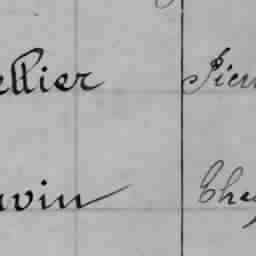 ellier Pierr
uvin Chey